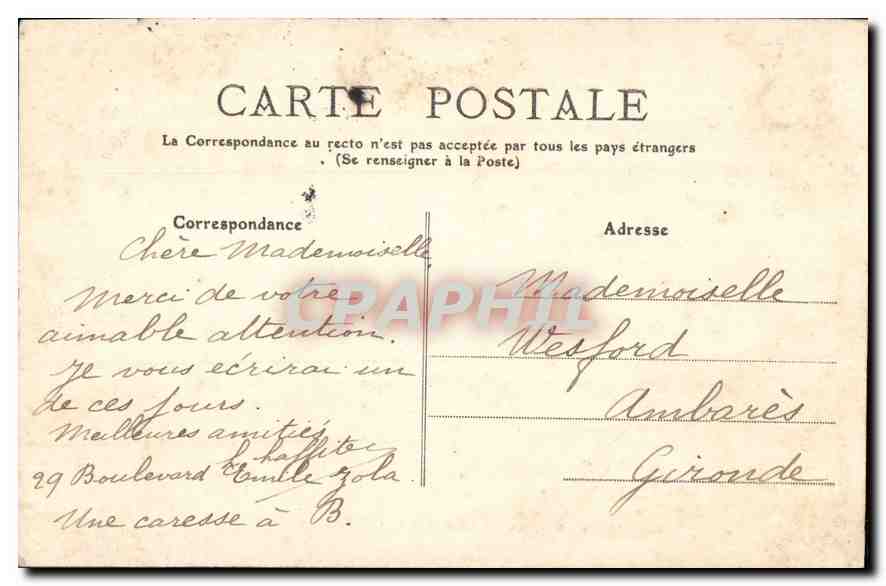 CARTE POSTALE
La Correspondance au recto n'est pas acceptée par tous les pays étrangers
. (Se renseigner à la Poste)
Correspondance
Chère Mademoiselle,
Merci de votre
aimable attention.
Je vous écrirai un
de ces jours.
Meilleures amitiés
29 Boulevard Emile Zola.
Une caresse à B.
Adresse
Mademoiselle
Wesford
Ambarès
Gironde
CPAPHIL